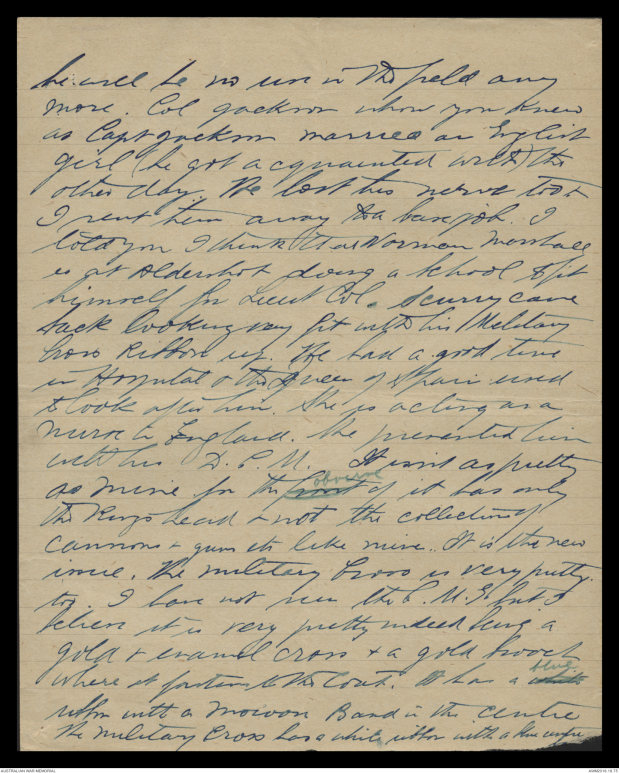 he will be no use in the field any
more. Col Jackson whom you knew
as Capt Jackson married an English
girl he got acquainted with the
other day. He lost his nerve too &
I sent him away to a base job. I
told you I think that Norman Marshall
is at Aldershot doing a School to fit
himself for Lieut Col. Scurry came
back looking very fit with his Military
Cross Ribbon up. He had a good time
in Hospital & the Queen of Spain used
to look after him. She is acting as a
nurse in England. She presented him
with his D.C.M. It isn't as pretty
as mine for the front obverse of it has only
the Kings head & not the collection of
cannons & guns etc like mine. It is the new
issue. The military Cross is very pretty
too. I have not seen the C.M.G. but I
believe it is very pretty indeed being a
gold & enamel cross & a gold brooch
where it fastens to the Coat. It has a white blue
ribbon with a maroon Band in the centre
the Military Cross has a white ribbon with a blue centre
AUSTRALIAN WAR MEMORIAL